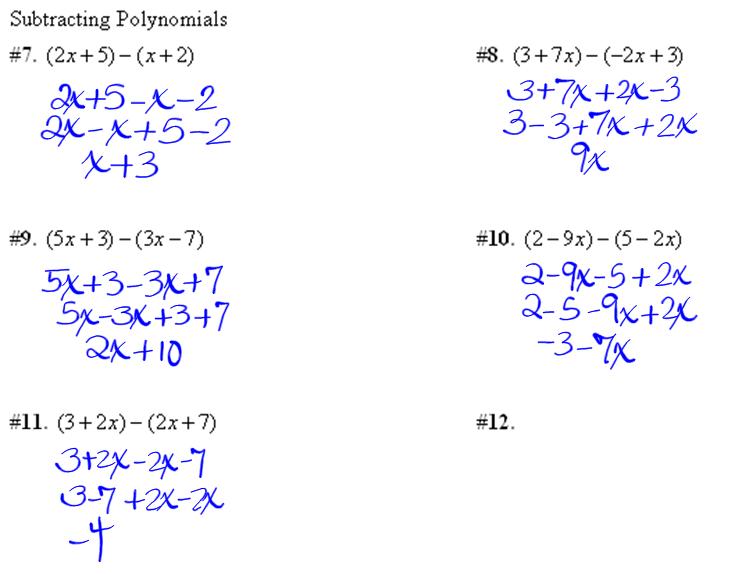 Subtracting Polynomials
#7. (2x+5)−(x+2)
2x+5−x−2
2x−x+5−2
x+3
#8. (3+7x)−(−2x+3)
3+7x+2x−3
3−3+7x+2x
9x
#9. (5x+3)−(3x−7)
5x+3−3x+7
5x−3x+3+7
2x+10
#10. (2−9x)−(5−2x)
2−9x−5+2x
2−5−9x+2x
−3−7x
#11. (3+2x)−(2x+7)
3+2x−2x−7
3−7+2x−2x
−4
#12.